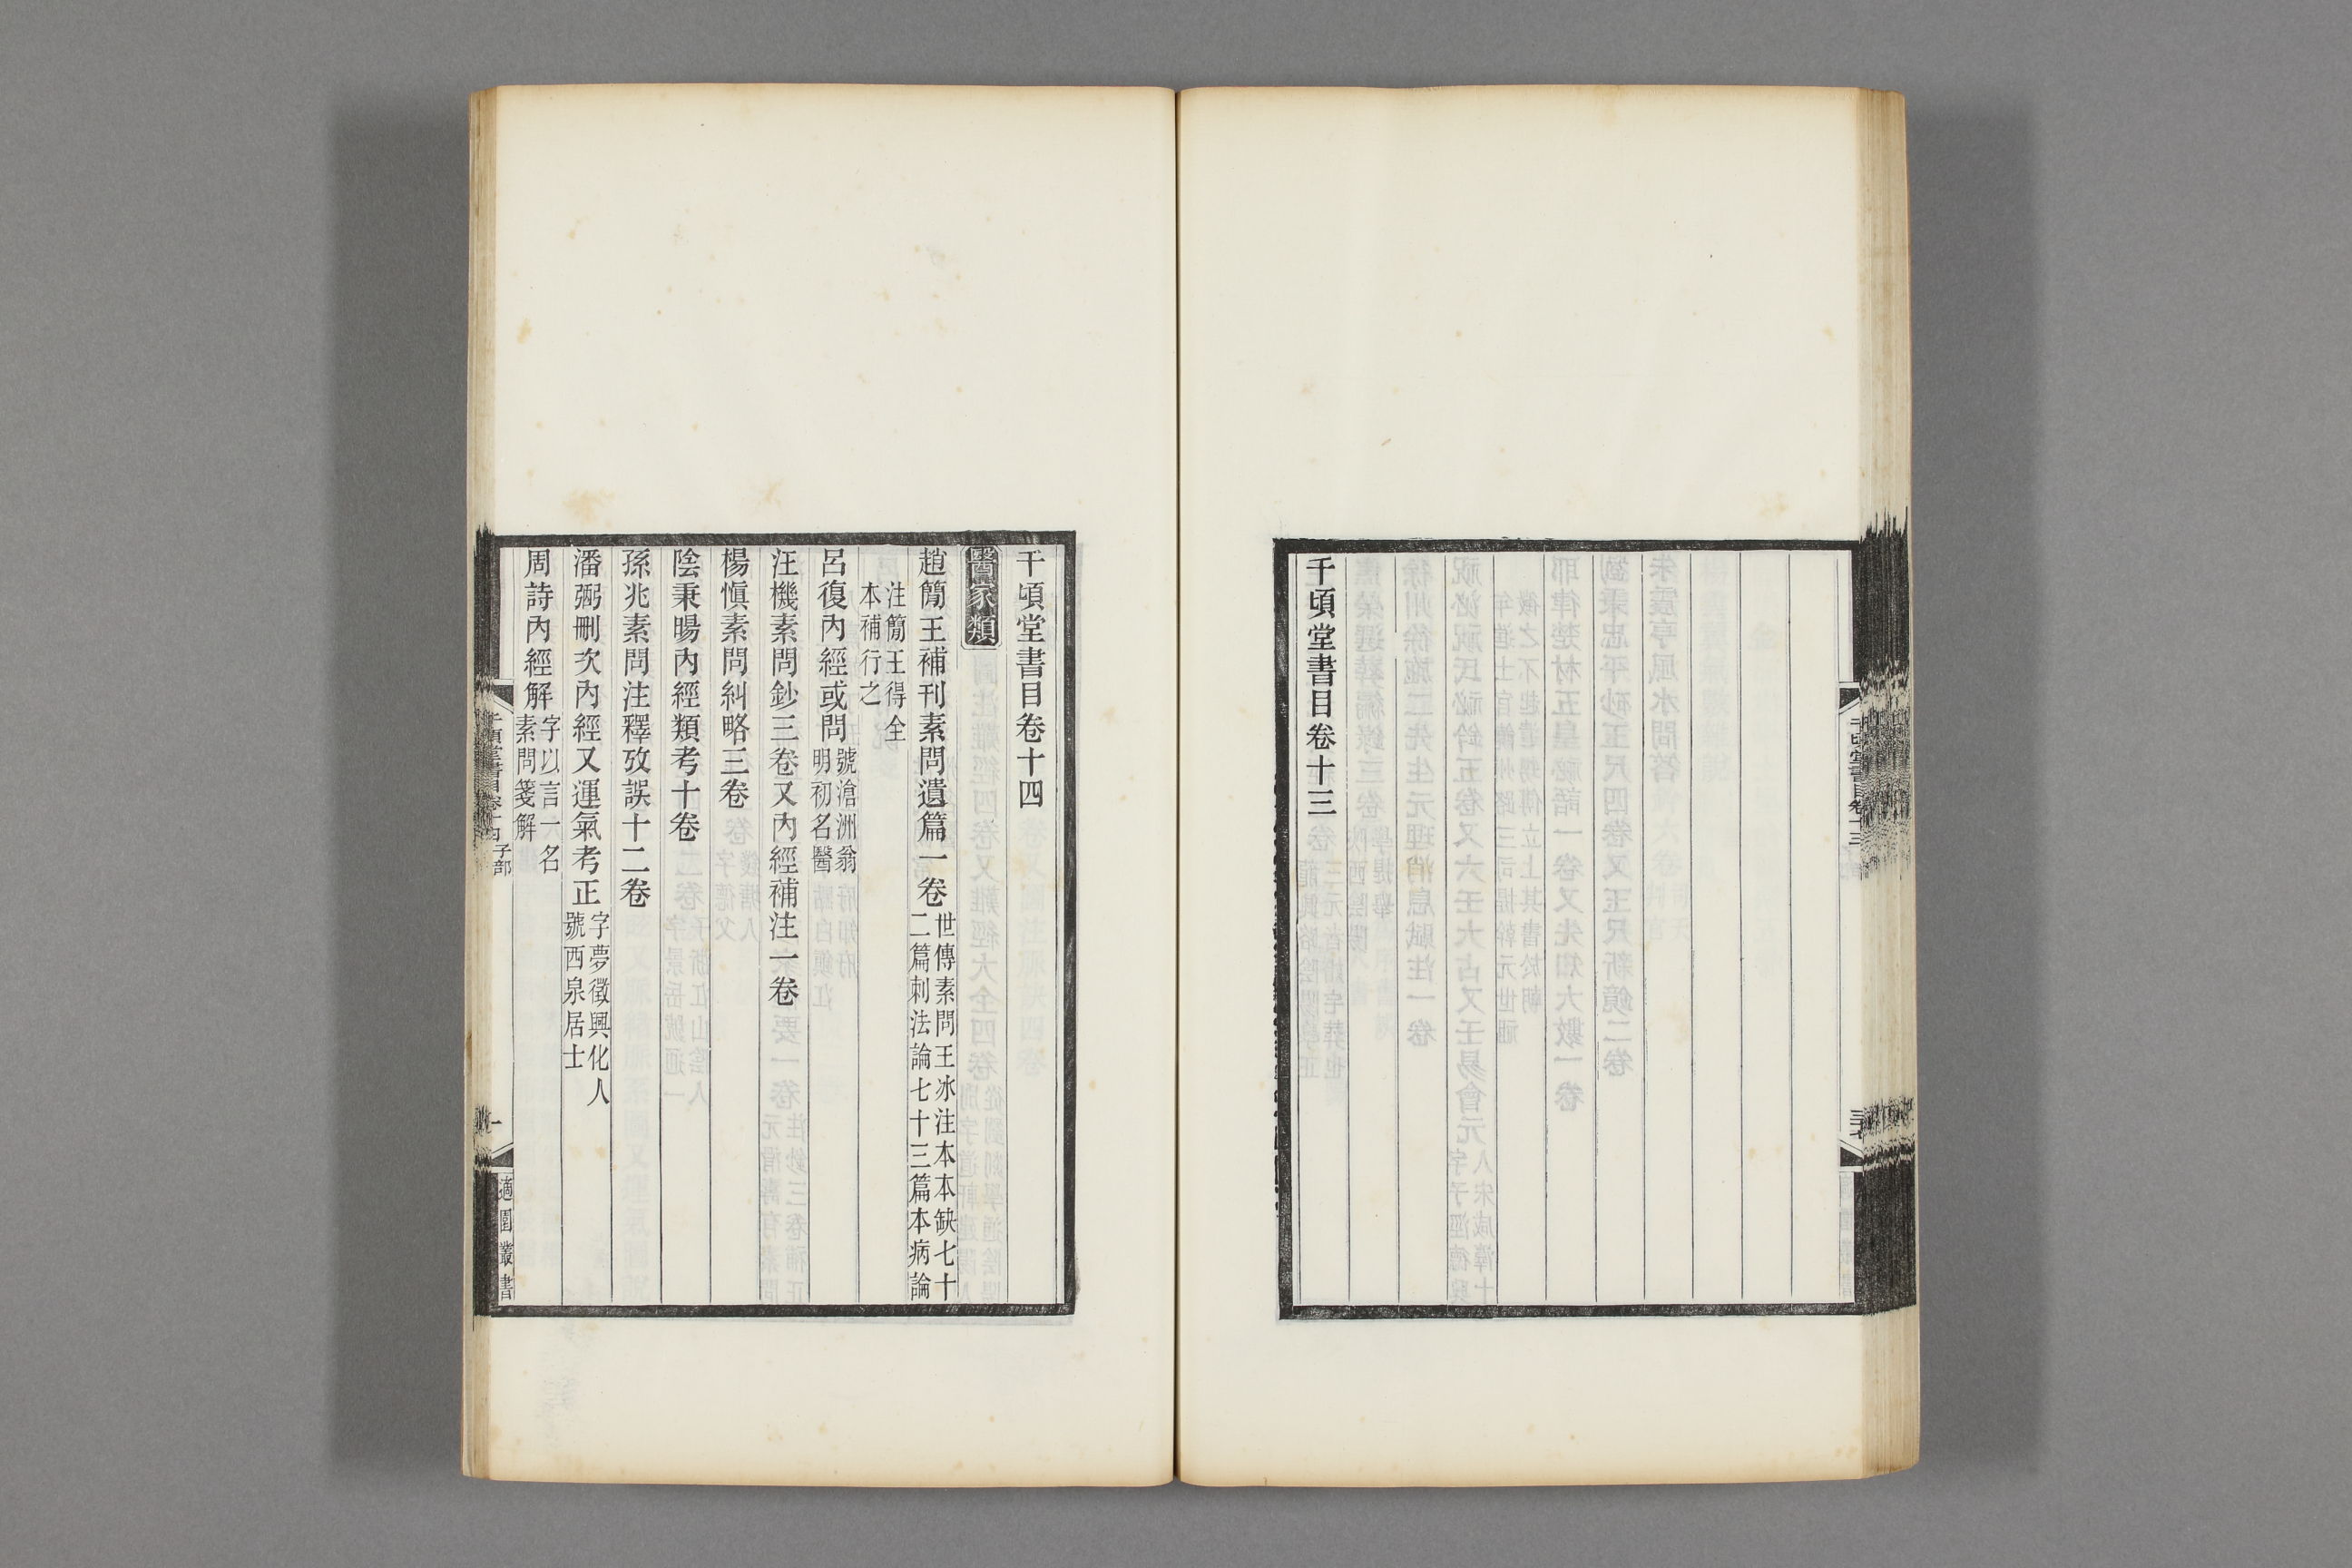 千頃堂書目卷十三
千頃堂書目卷十三
三十七
千頃堂書目卷十四
醫家類
趙簡王補刊素問遺篇一卷 世傳素問王冰注本本缺七十
二篇刺法論七十三篇本病論
注簡王得全
本補行之
呂復內經或問 號滄洲翁
明初名醫
汪機素問鈔三卷又內經補注一卷
楊慎素問糾略三卷
陰秉暘內經類考十卷
孫兆素問注釋攷誤十二卷
潘弼刪次內經又運氣考正 字夢徵興化人
號西泉居士
周詩內經解 字以言一名
素問箋解
千頃堂書目卷十四 子部
一
適園叢書